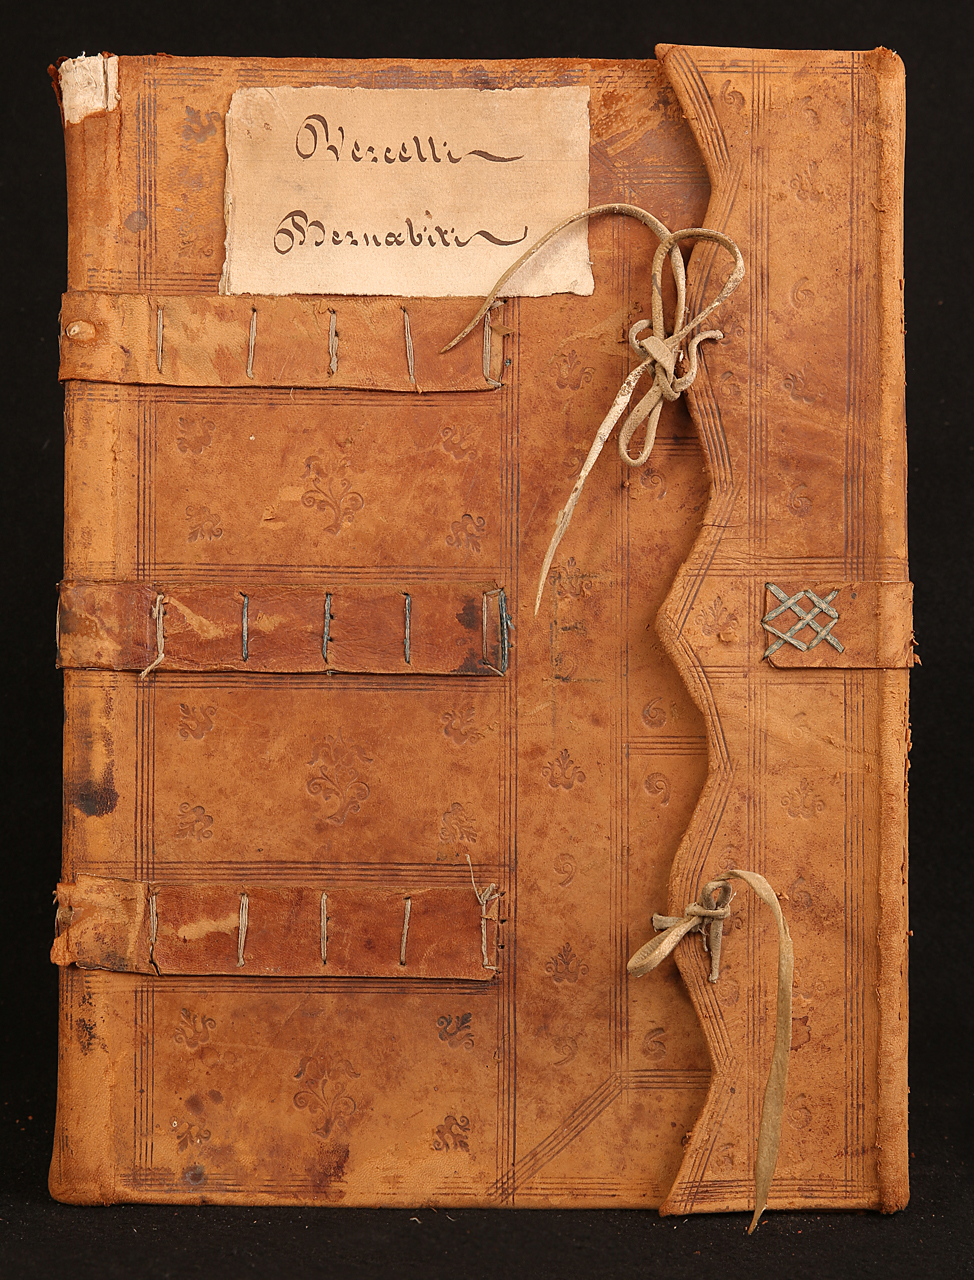 Vercelli
Bernabiti